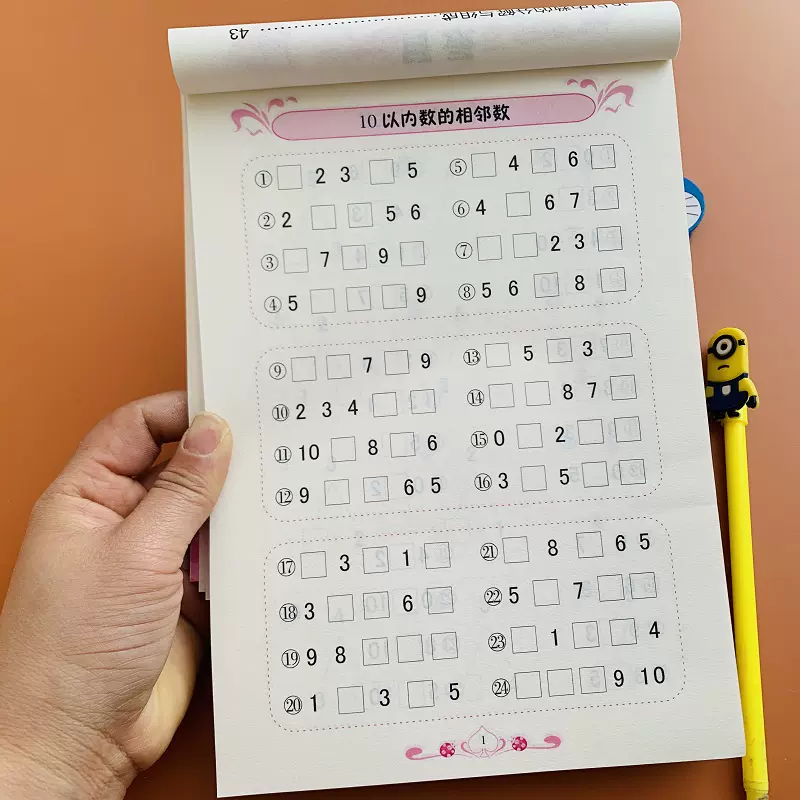 数的分解与组成 ………… 43
10以内数的相邻数
① □ 2 3 □ 5 ⑤ □ 4 □ 6 □
② 2 □ □ 5 6 ⑥ 4 □ 6 7 □
③ □ 7 □ 9 □ ⑦ □ □ 2 3 □
④ 5 □ □ □ 9 ⑧ 5 6 □ 8 □
⑨ □ □ 7 □ 9 ⑬ □ 5 □ 3 □
⑩ 2 3 4 □ □ ⑭ □ □ 8 7 □
⑪ 10 □ 8 □ 6 ⑮ 0 □ 2 □ □
⑫ 9 □ □ 6 5 ⑯ 3 □ 5 □ □
⑰ □ 3 □ 1 □ ㉑ □ 8 □ 6 5
⑱ 3 □ □ 6 □ ㉒ 5 □ 7 □ □
⑲ 9 8 □ □ □ ㉓ □ 1 □ □ 4
⑳ 1 □ 3 □ 5 ㉔ □ □ □ 9 10
1